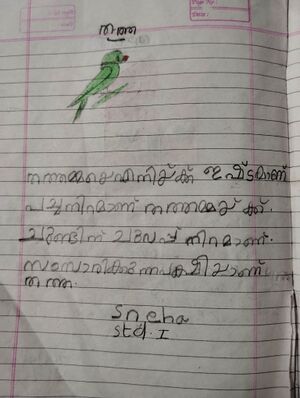 തത്ത
തത്തമ്മയെ എനിയ്ക്ക് ഇഷ്ടമാണ്
പച്ചനിറമാണ് തത്തമ്മയ്ക്ക്.
ചുണ്ടിന് ചുവപ്പ് നിറമാണ്.
സംസാരിക്കുന്നപക്ഷിയാണ്
തത്ത.
Sneha
Std. I